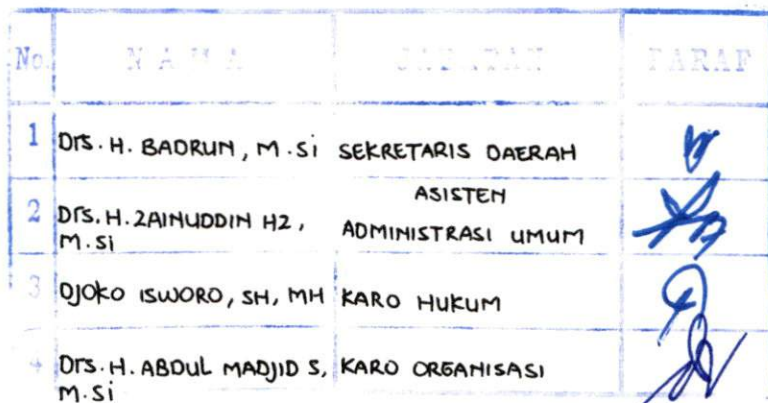 No. NAMA JABATAN PARAF
1 Drs. H. BADRUN, M.Si SEKRETARIS DAERAH
2 Drs. H. ZAINUDDIN HZ, M.Si ASISTEN ADMINISTRASI UMUM
3 DJOKO ISWORO, SH, MH KARO HUKUM
4 Drs. H. ABDUL MADJID S, M.Si KARO ORGANISASI